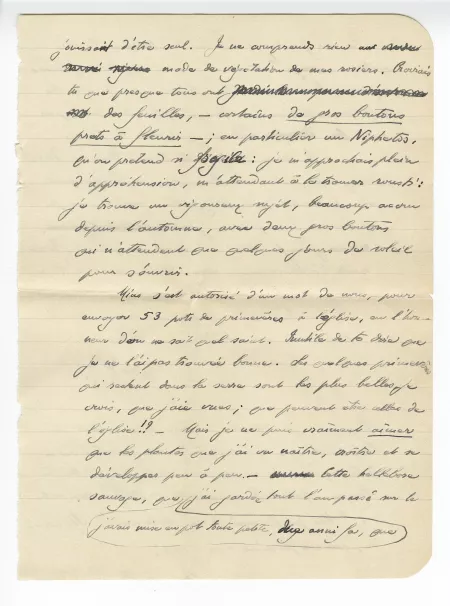 jouissait d'être seul. Je ne comprends rien au
mode de végétation de mes rosiers. Croirais
tu que presque tous ont
des feuilles, — certains de gros boutons
prêts à fleurir — ; en particulier un Niphetos,
qu'on prétend si fragile : je m'approchais plein
d'appréhension, m'attendant à le trouver rousti :
je trouve un vigoureux sujet, beaucoup accru
depuis l'automne, avec deux gros boutons
qui n'attendent que quelques jours de soleil
pour s'ouvrir.
Mius s'est autorisé d'un mot de nous, pour
envoyer 53 pots de primevères à l'église, en l'hon-
neur d'on ne sait quel saint. Inutile de te dire que
je ne l'ai pas trouvée bonne. Les quelques primevères
qui restent dans la serre sont les plus belles, je
crois, que j'aie vues ; que peuvent être celles de
l'église !! — Mais je ne puis vraiment aimer
que les plantes que j'ai vu naître, croître et se
développer peu à peu. — Cette
sauvage, que j'ai gardée tout l'an passé sur le
j'avais mise en pot toute petite, que